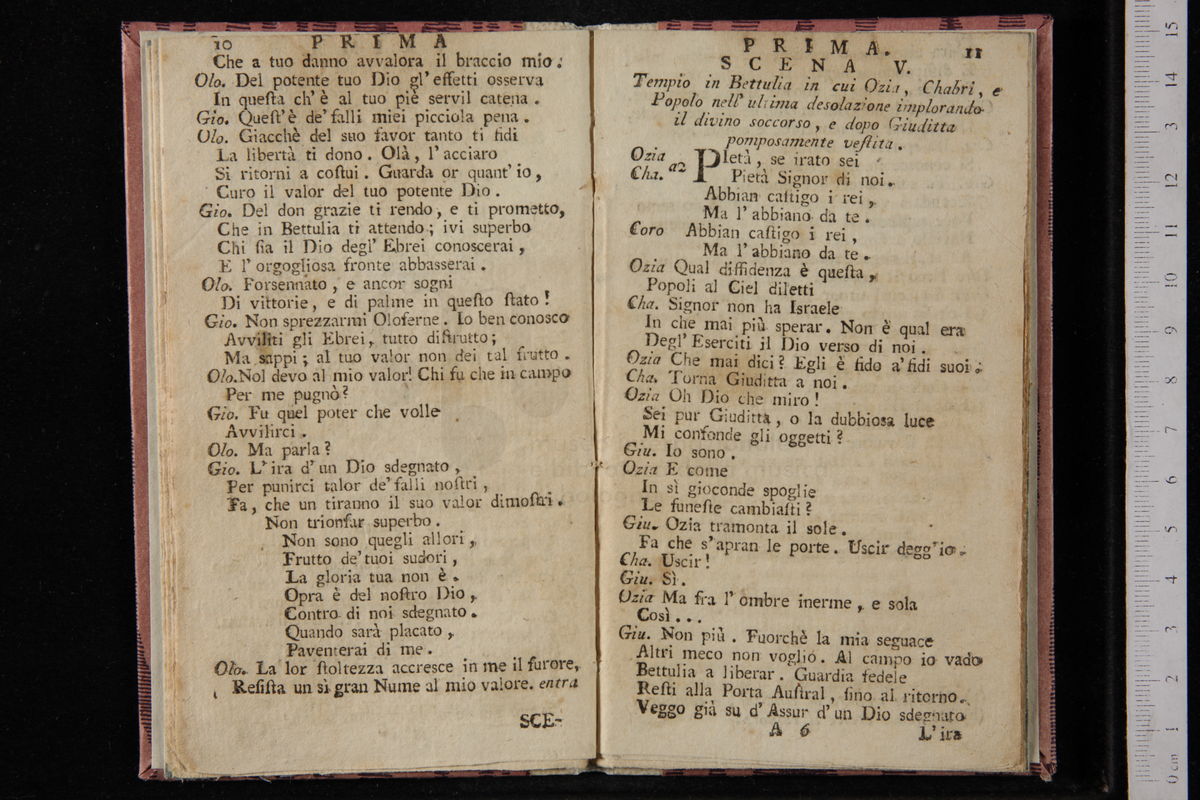 10 PRIMA
Che a tuo danno avvalora il braccio mio.
Olo. Del potente tuo Dio gl' effetti osserva
In queſta ch' è al tuo piè servil catena.
Gio. Queſt' è de' falli miei picciola pena.
Olo. Giacchè del suo favor tanto ti fidi
La libertà ti dono. Olà, l' acciaro
Si ritorni a coſtui. Guarda or quant' io,
Curo il valor del tuo potente Dio.
Gio. Del don grazie ti rendo, e ti prometto,
Che in Bettulia ti attendo; ivi superbo
Chi ſia il Dio degl' Ebrei conoscerai,
E l' orgogliosa fronte abbasserai.
Olo. Forsennato, e ancor sogni
Di vittorie, e di palme in queſto ſtato!
Gio. Non sprezzarmi Oloferne. Io ben conosco
Avviliti gli Ebrei, tutto diſtrutto;
Ma sappi; al tuo valor non dei tal frutto.
Olo. Nol devo al mio valor! Chi fu che in campo
Per me pugnò?
Gio. Fu quel poter che volle
Avvilirci.
Olo. Ma parla?
Gio. L' ira d' un Dio sdegnato,
Per punirci talor de' falli noſtri,
Fa, che un tiranno il suo valor dimoſtri.
Non trionfar superbo.
Non sono quegli allori,
Frutto de' tuoi sudori,
La gloria tua non è.
Opra è del noſtro Dio,
Contro di noi sdegnato.
Quando sarà placato,
Paventerai di me.
Olo. La lor ſtoltezza accresce in me il furore,
Reſiſta un sì gran Nume al mio valore. entra
SCE-
PRIMA. 11
SCENA V.
Tempio in Bettulia in cui Ozia, Chabri, e
Popolo nell' ultima desolazione implorando
il divino soccorso, e dopo Giuditta
pomposamente veſtita.
Ozia
Cha. a2 PIetà, se irato sei
Pietà Signor di noi.
Abbian caſtigo i rei,
Ma l' abbiano da te.
Coro Abbian caſtigo i rei,
Ma l' abbiano da te.
Ozia Qual diffidenza è queſta,
Popoli al Ciel diletti
Cha. Signor non ha Israele
In che mai più sperar. Non è qual era
Degl' Eserciti il Dio verso di noi.
Ozia Che mai dici? Egli è fido a' fidi suoi.
Cha. Torna Giuditta a noi.
Ozia Oh Dio che miro!
Sei pur Giuditta, o la dubbiosa luce
Mi confonde gli oggetti?
Giu. Io sono.
Ozia E come
In sì gioconde spoglie
Le funeſte cambiaſti?
Giu. Ozia tramonta il sole.
Fa che s' apran le porte. Uscir degg' io.
Cha. Uscir!
Giu. Sì.
Ozia Ma fra l' ombre inerme, e sola
Così...
Giu. Non più. Fuorchè la mia seguace
Altri meco non voglio. Al campo io vado
Bettulia a liberar. Guardia fedele
Reſti alla Porta Auſtral, ſino al ritorno.
Veggo già su d' Assur d' un Dio sdegnato
A 6 L' ira
0 cm 1 2 3 4 5 6 7 8 9 10 11 12 13 14 15